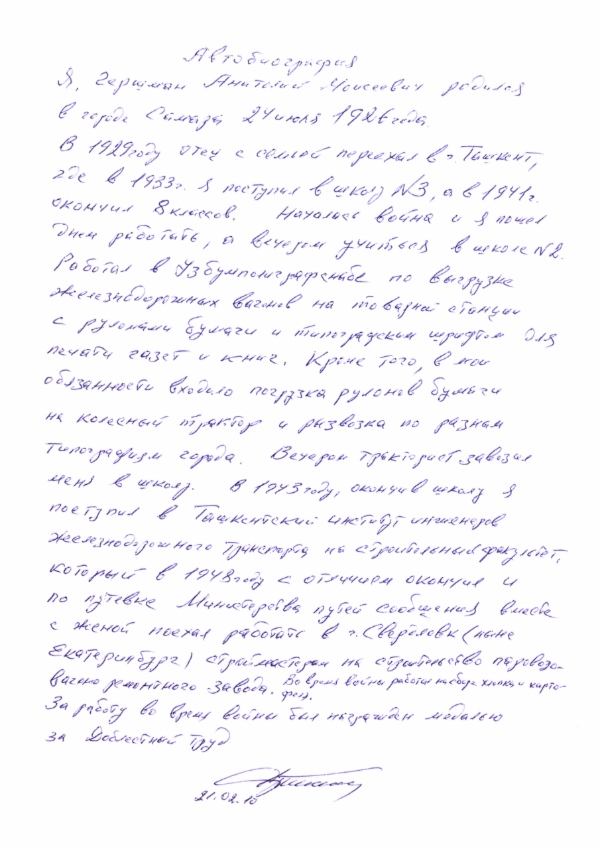 Автобиография
Я, Гершман Анатолий Моисеевич родился
в городе Самара 24 июля 1926 года.
В 1929 году отец с семьей переехал в г. Ташкент,
где в 1933 г. я поступил в школу №3, а в 1941 г.
окончил 8 классов. Началась война и я пошел
днем работать, а вечером учиться в школе №2.
Работал в Узбумполиграфснабе по выгрузке
железнодорожных вагонов на товарной станции
с рулонами бумаги и типографским шрифтом для
печати газет и книг. Кроме того, в мои
обязанности входило погрузка рулонов бумаги
на колесный трактор и развозка по разным
типографиям города. Вечером тракторист завозил
меня в школу. В 1943 году, окончив школу я
поступил в Ташкентский институт инженеров
железнодорожного транспорта на строительный факультет,
который в 1948 году с отличием окончил и
по путевке Министерства путей сообщения вместе
с женой поехал работать в г. Свердловск (ныне
Екатеринбург) строймастером на строительство паровозо-
вагоно ремонтного завода. Во время войны работал на сборе хлопка и карто-
феля.
За работу во время войны был награжден медалью
за Доблестный труд
21.02.10